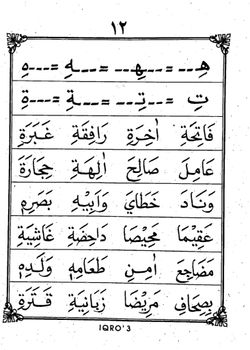 ١٢
هِـ ـ ـ = ـ ـ ـهِـ ـ ـ = ـ ـ ـهِ = ـ ـ ـ هِ
تِ = ـ ـ ـتِـ ـ ـ = ـ ـ ـةِ = ـ ـ ـ ةِ
فَاتِحَةِ اٰخِرَةِ رَافِقَةِ غَبَرَةِ
عَامِلَ صَالِحَ اٰلِهَةِ حِجَارَةَ
وَنَادَ خَطَايَ وَابِيْهِ بَصَرِهِ
عَقِيْمَا مَحِيْصَا دَاحِضَةِ غَاشِيَةِ
مَضَاجِعِ اٰمِنِ طَعَامِهِ وَلَدِهِ
بِصِحَافِ مَرِيْضَا زَبَانِيَةَ قَتَرَةِ
IQRO'3